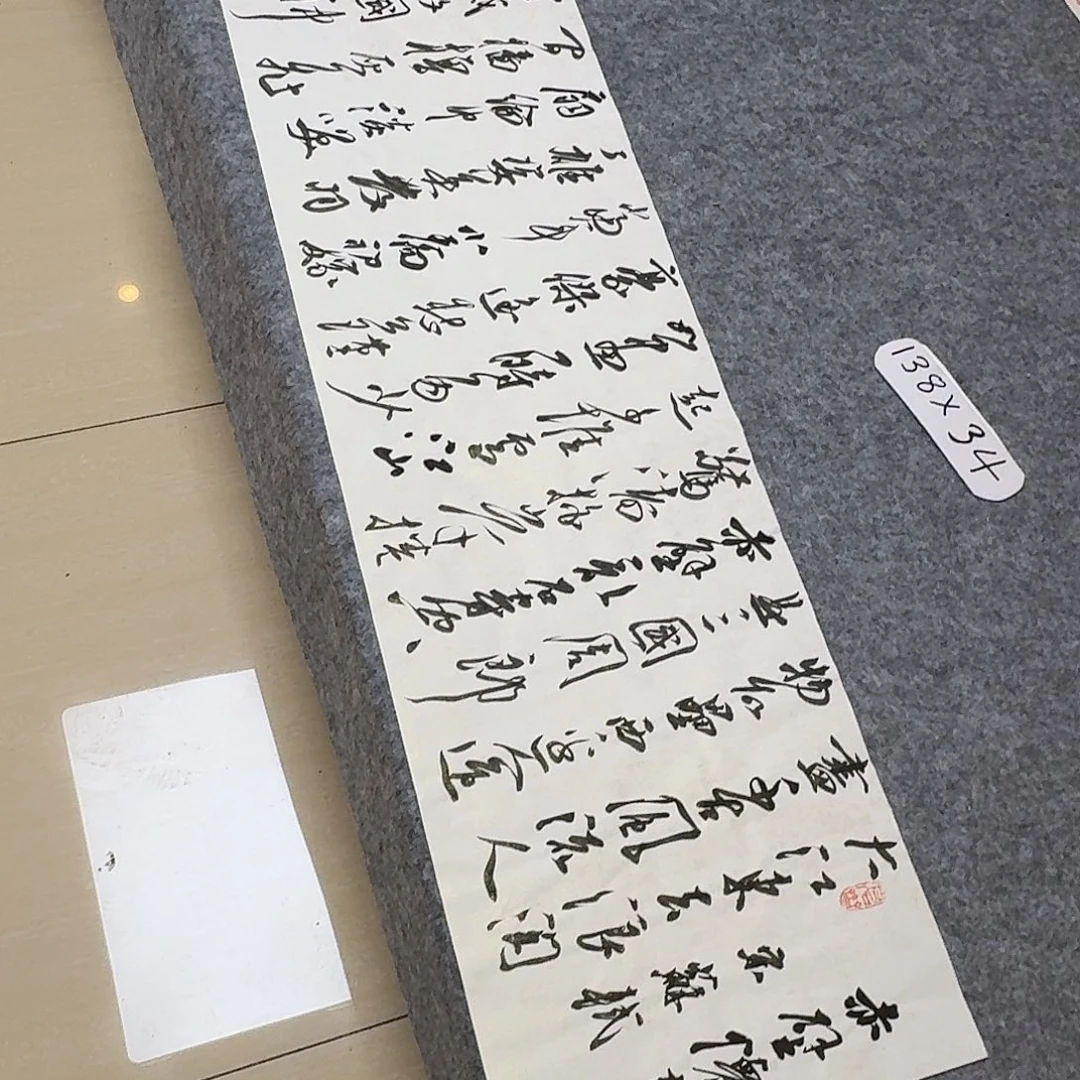 赤壁懷
宋蘇軾
大江東去浪淘
盡千古風流人
物故壘西邊人道
是三國周郎
赤壁亂石穿空
驚濤拍岸捲
起千堆雪江山
如画一時多少
豪傑遥想公瑾
當年小喬初嫁
了雄姿英發羽
扇綸巾談笑
間檣櫓灰飛
國神
138×34